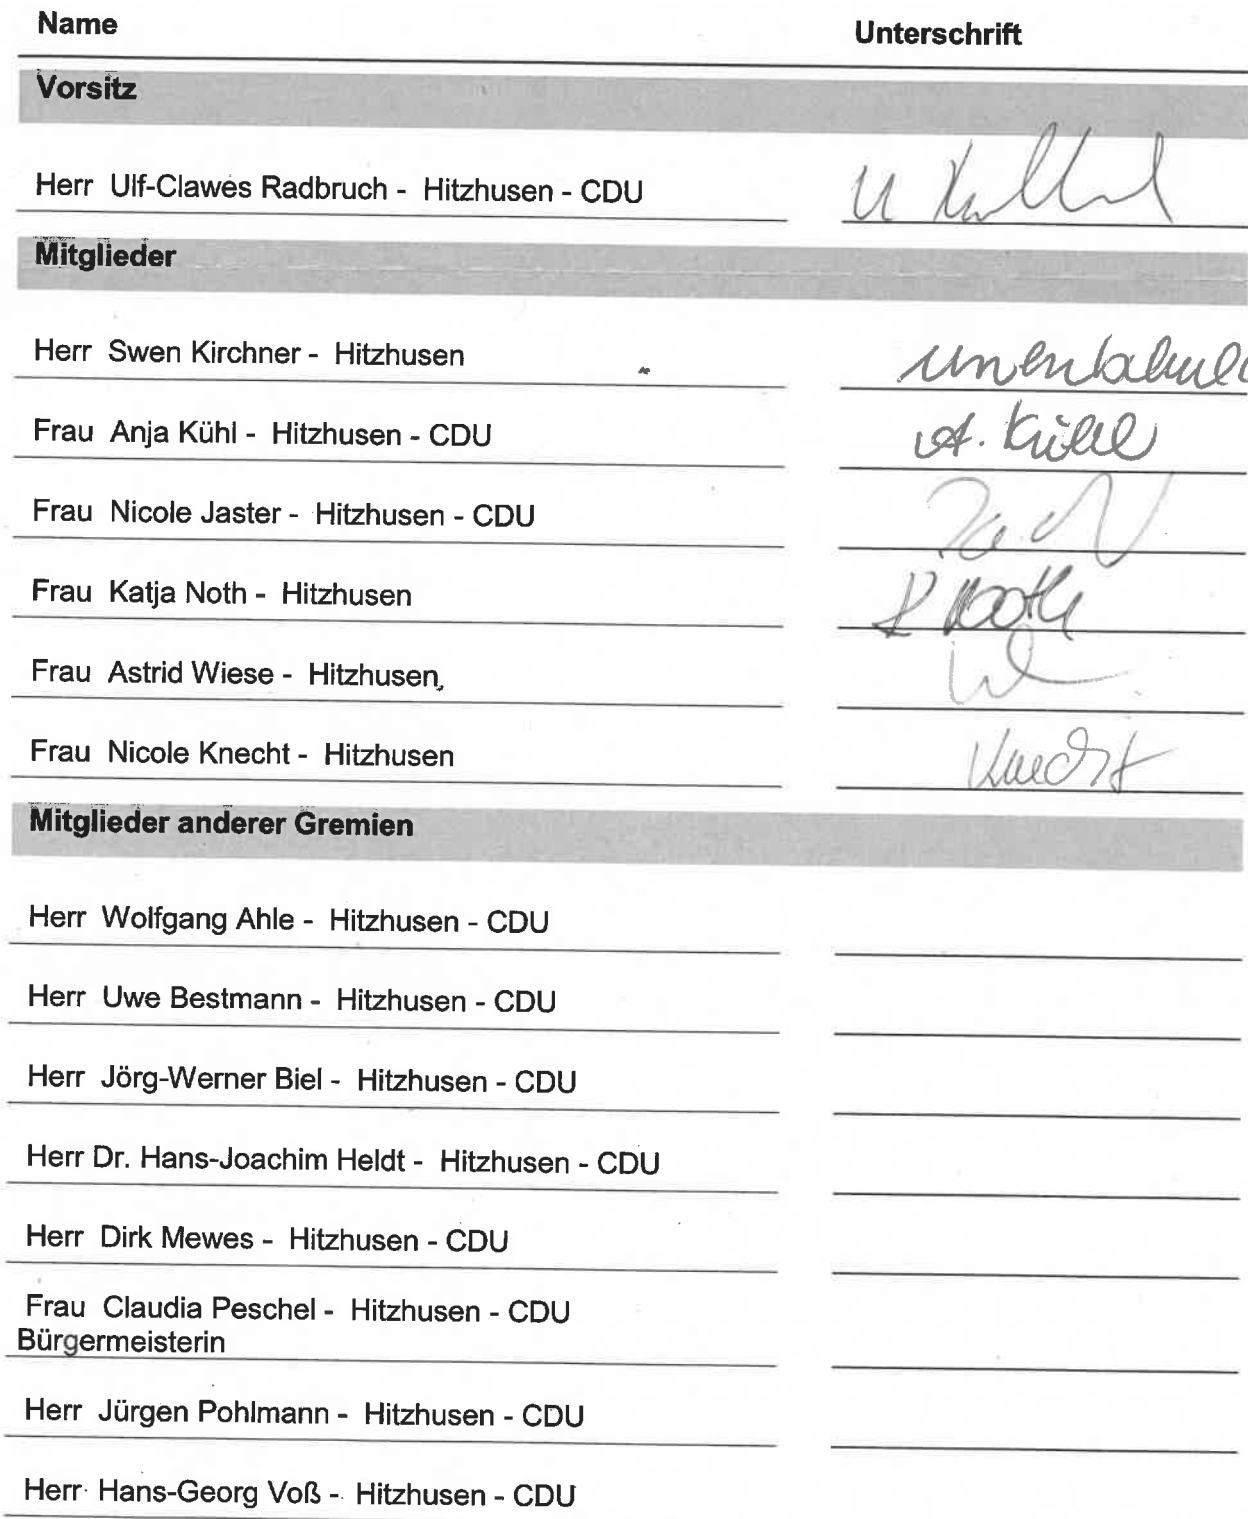 Name Unterschrift
Vorsitz
Herr Ulf-Clawes Radbruch - Hitzhusen - CDU
Mitglieder
Herr Swen Kirchner - Hitzhusen
Frau Anja Kühl - Hitzhusen - CDU A. Kühl
Frau Nicole Jaster - Hitzhusen - CDU
Frau Katja Noth - Hitzhusen K Noth
Frau Astrid Wiese - Hitzhusen,
Frau Nicole Knecht - Hitzhusen Knecht
Mitglieder anderer Gremien
Herr Wolfgang Ahle - Hitzhusen - CDU
Herr Uwe Bestmann - Hitzhusen - CDU
Herr Jörg-Werner Biel - Hitzhusen - CDU
Herr Dr. Hans-Joachim Heldt - Hitzhusen - CDU
Herr Dirk Mewes - Hitzhusen - CDU
Frau Claudia Peschel - Hitzhusen - CDU
Bürgermeisterin
Herr Jürgen Pohlmann - Hitzhusen - CDU
Herr Hans-Georg Voß - Hitzhusen - CDU